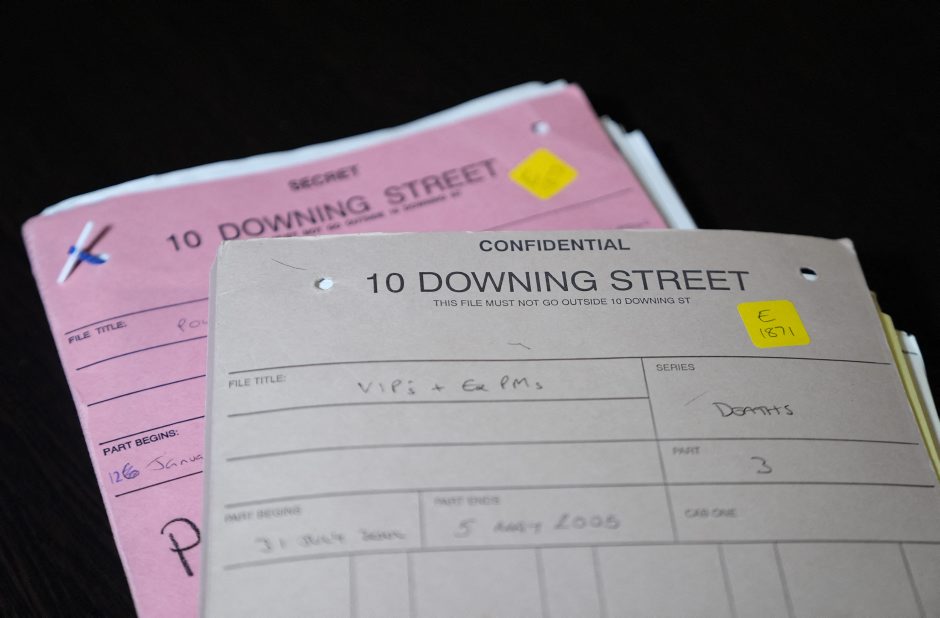 SECRET
10 DOWNING STREET
FILE TITLE:
PART BEGINS:
CONFIDENTIAL
10 DOWNING STREET
THIS FILE MUST NOT GO OUTSIDE 10 DOWNING ST
E
1871
FILE TITLE:
VIPs + Ex PMs
SERIES
DEATHS
PART
3
PART BEGINS
31 JULY
PART ENDS
5 2005
CAB ONE